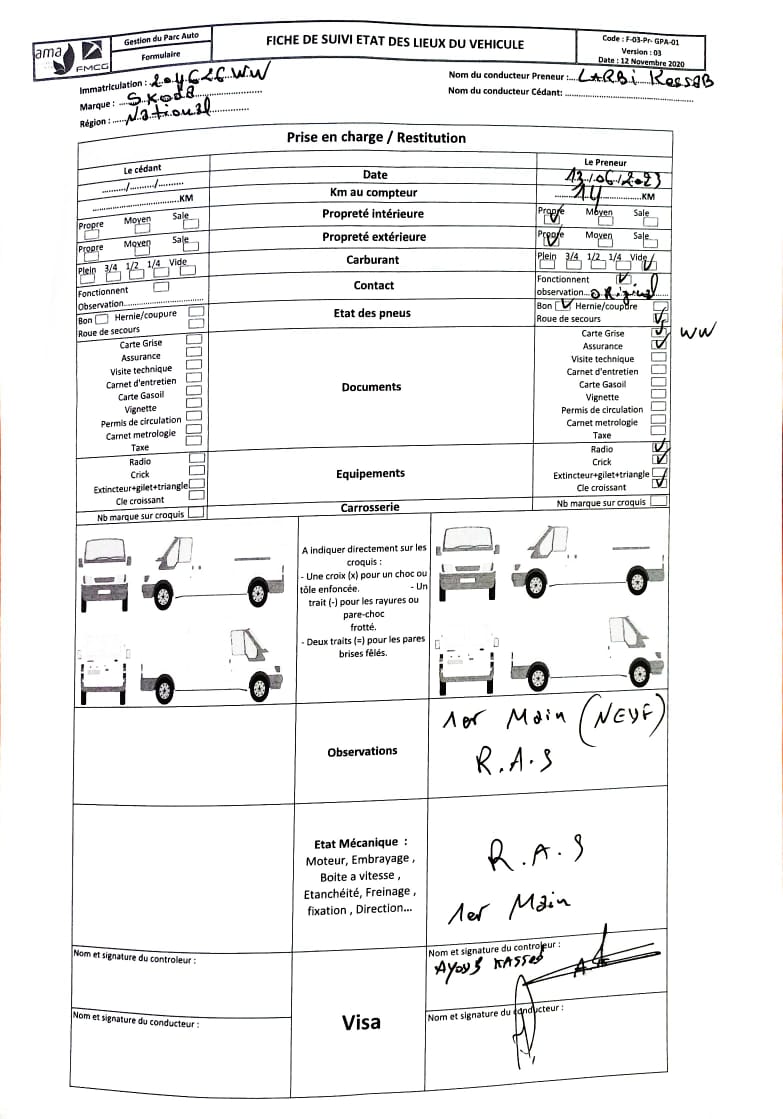 ama
FMCG
Gestion du Parc Auto
Formulaire
FICHE DE SUIVI ETAT DES LIEUX DU VEHICULE
Code : F-03-Pr- GPA-01
Version : 03
Date : 12 Novembre 2020
Immatriculation : 204626 WW
Marque : Skoda
Région : National
Nom du conducteur Preneur : LARBi
Nom du conducteur Cédant:
Prise en charge / Restitution
Le cédant
Le Preneur
......../......../........
Date
13/06/2023
KM
Km au compteur
14 KM
Propre Moyen Sale
Propreté intérieure
Propre Moyen Sale
Propre Moyen Sale
Propreté extérieure
Propre Moyen Sale
Plein 3/4 1/2 1/4 Vide
Carburant
Plein 3/4 1/2 1/4 Vide
Fonctionnent
Observation
Contact
Fonctionnent
observation... original
Bon Hernie/coupure
Roue de secours
Etat des pneus
Bon Hernie/coupure
Roue de secours
Carte Grise
Assurance
Visite technique
Carnet d'entretien
Carte Gasoil
Vignette
Permis de circulation
Carnet metrologie
Taxe
Documents
Carte Grise WW
Assurance
Visite technique
Carnet d'entretien
Carte Gasoil
Vignette
Permis de circulation
Carnet metrologie
Taxe
Radio
Crick
Extincteur+gilet+triangle
Cle croissant
Equipements
Radio
Crick
Extincteur+gilet+triangle
Cle croissant
Nb marque sur croquis
Carrosserie
Nb marque sur croquis
A indiquer directement sur les
croquis :
- Une croix (x) pour un choc ou
tôle enfoncée. - Un
trait (-) pour les rayures ou
pare-choc
frotté.
- Deux traits (=) pour les pares
brises fêlés.
Observations
1er Main (NEUF)
R.A.S
Etat Mécanique :
Moteur, Embrayage ,
Boite a vitesse ,
Etanchéité, Freinage ,
fixation , Direction...
R.A.S
1er Main
Nom et signature du controleur :
Nom et signature du controleur :
Nom et signature du conducteur :
Visa
Nom et signature du conducteur :